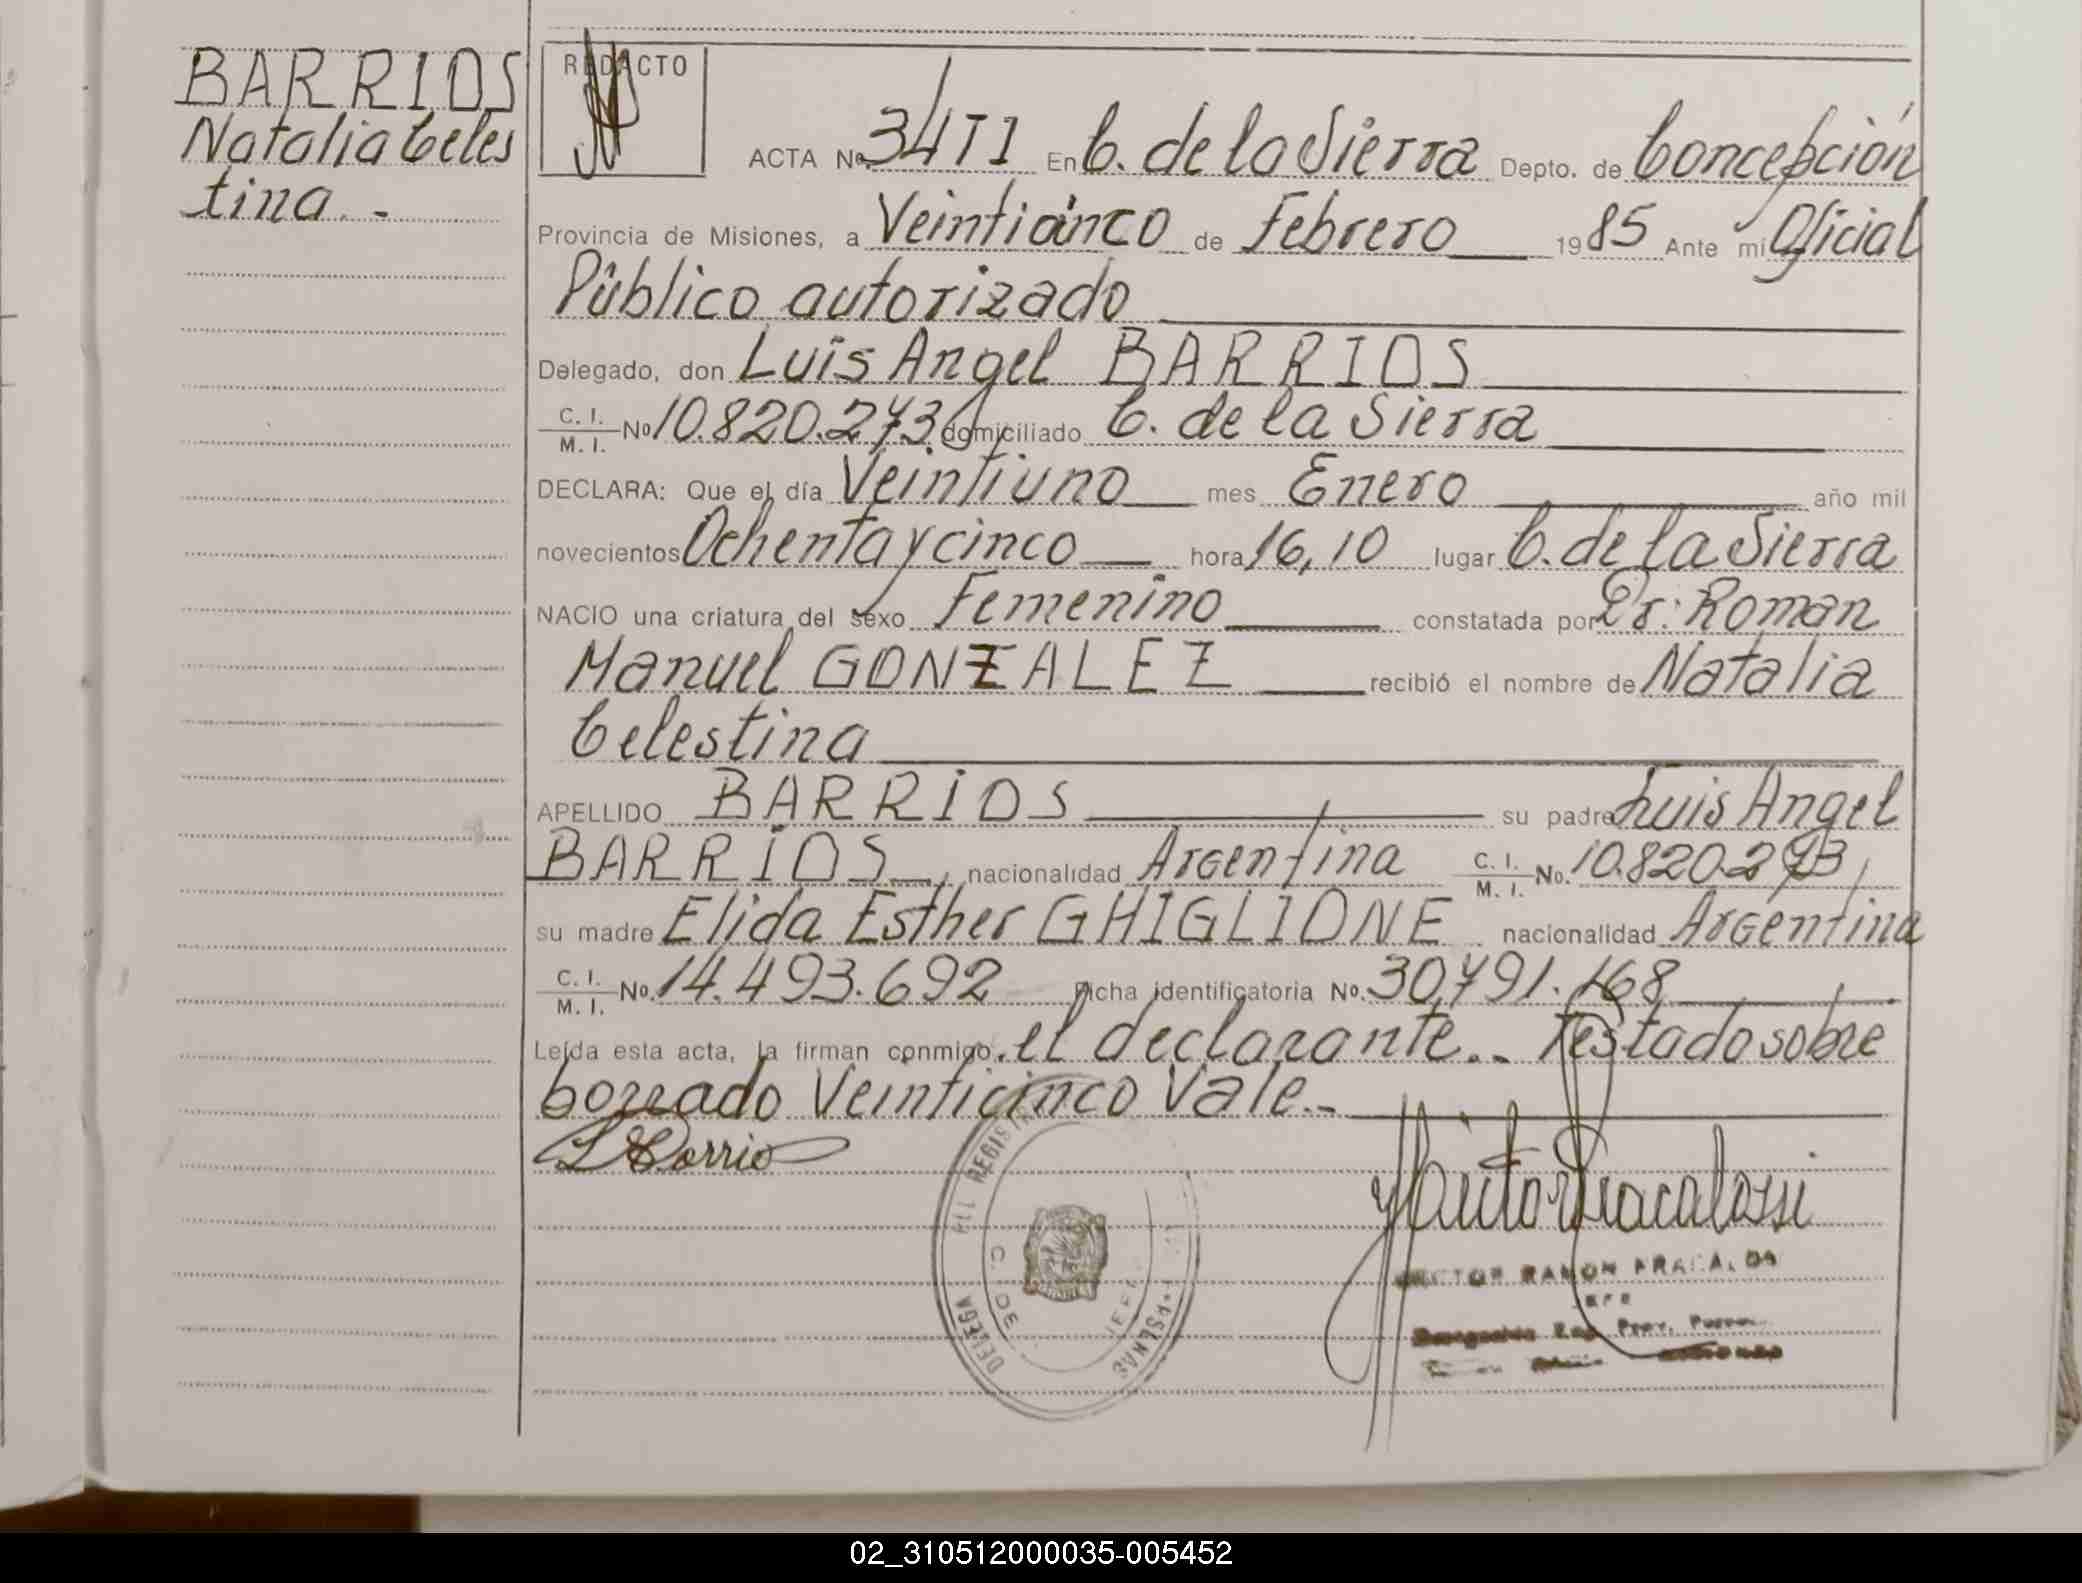 BARRIOS
Natalia Celes
tina.-
REDACTO
ACTA No. 34T1 En C. de la Sierra Depto. de Concepción
Provincia de Misiones, a Veinticinco de Febrero 1985 Ante mi Oficial
Público autorizado
Delegado, don Luis Angel BARRIOS
C. I. M. I. No 10.820.273 domiciliado C. de la Sierra
DECLARA: Que el día Veintiuno mes Enero año mil
novecientos Ochenta y cinco hora 16,10 lugar C. de la Sierra
NACIO una criatura del sexo Femenino constatada por Dr: Roman
Manuel GONZALEZ recibió el nombre de Natalia
Celestina
APELLIDO BARRIOS su padre Luis Angel
BARRIOS, nacionalidad Argentina C. I. M. I. No. 10.820.273
su madre Elida Esther GHIGLIONE nacionalidad Argentina
C. I. M. I. No. 14.493.692 Ficha identificatoria No. 30.791.168
Leída esta acta, la firman conmigo. el declarante.- Testado sobre
borrado Veinticinco Vale.-
L Barrio
HECTOR RAMON FRACALOSSI
JEFE
02_310512000035-005452